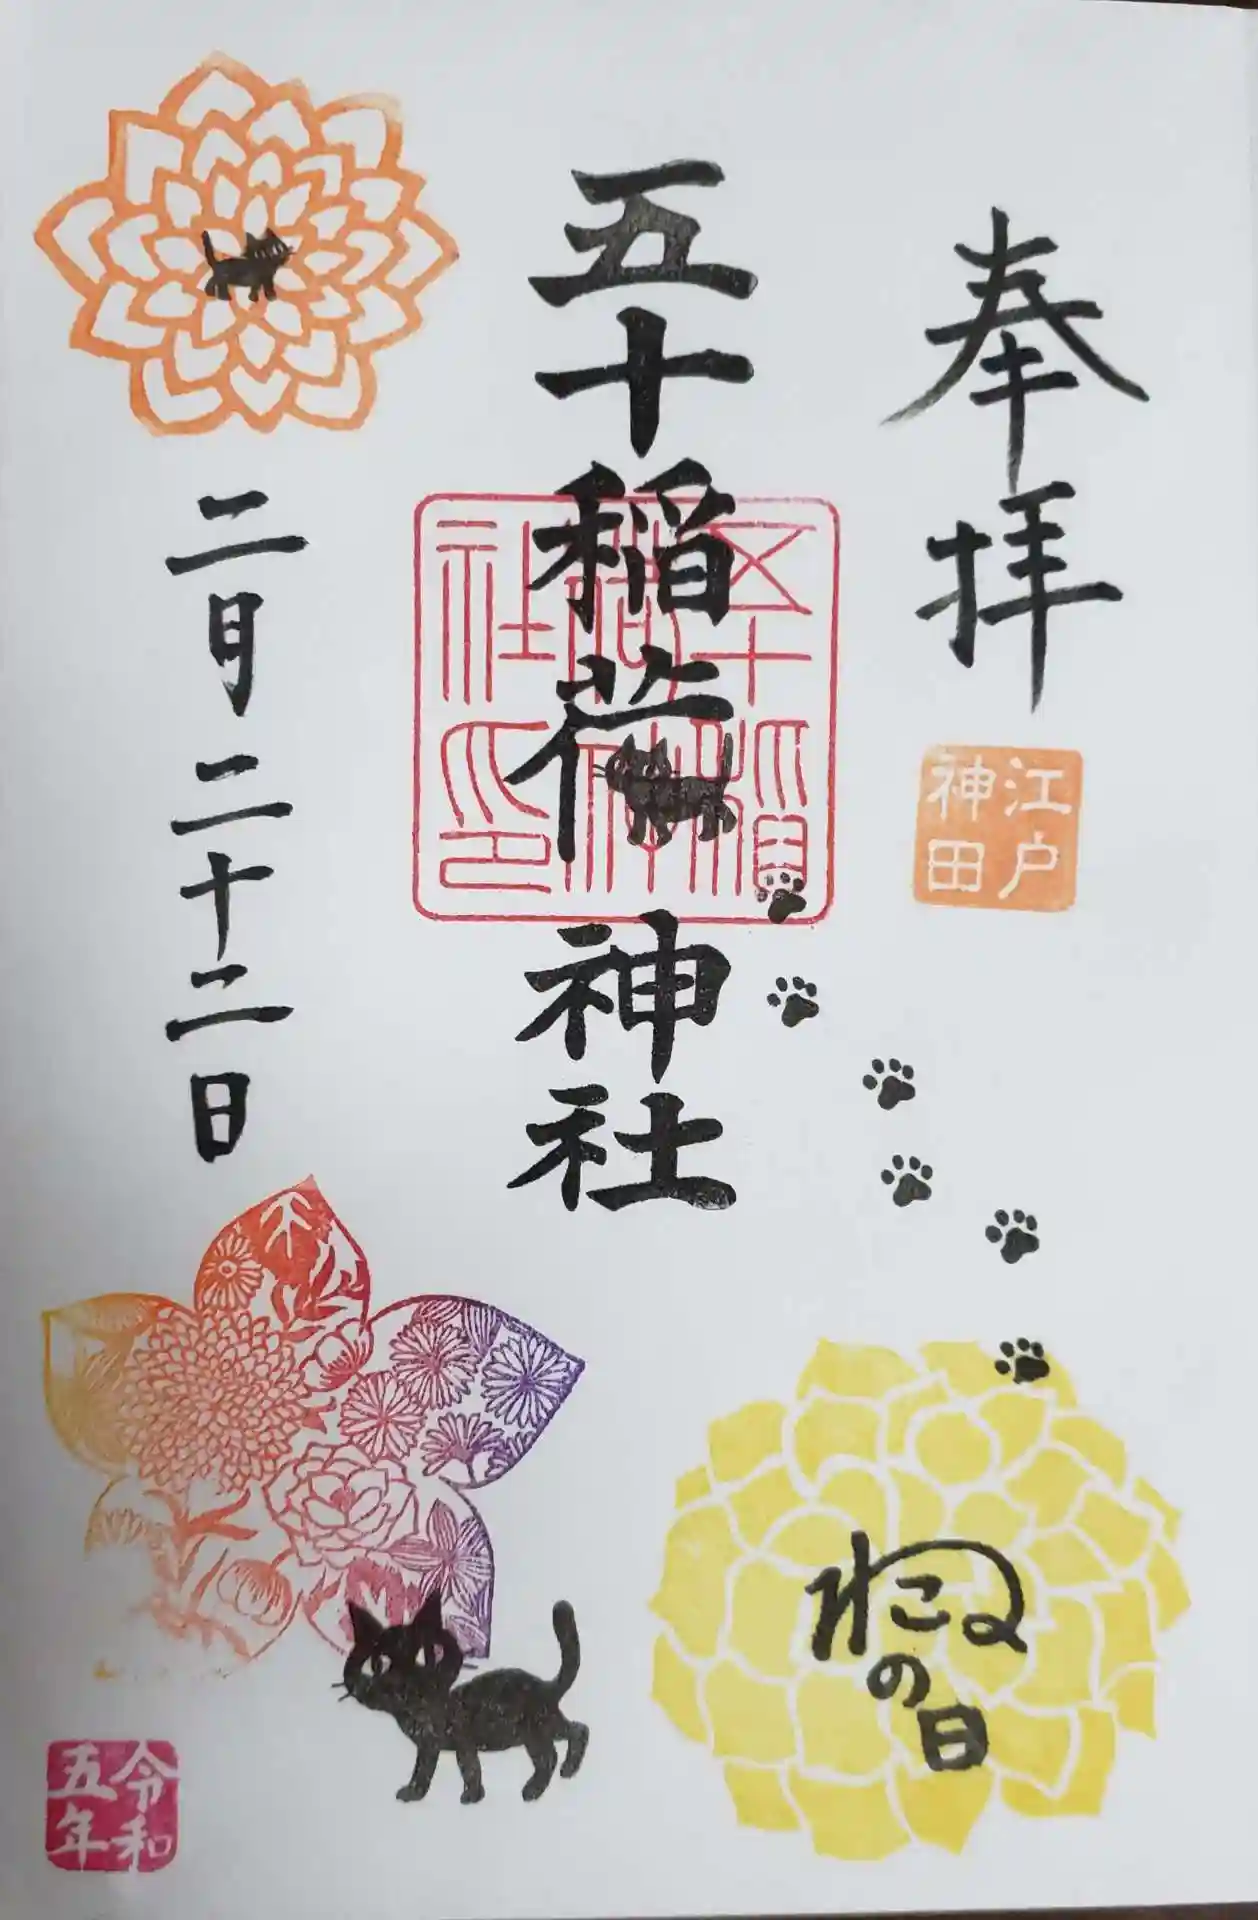 奉拝
江戸
神田
五十稲荷神社
五十稲
荷神
社印
二月二十二日
ねこ
の日
令和
五年